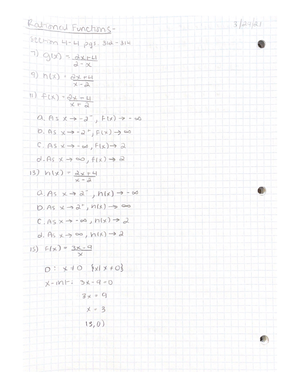 Rational Functions-
Section 4-4 pg1. 312-314
7) g(x) = 2x+4
2-x
9) h(x) = 2x+4
x-2
11) f(x) = 2x-4
x+2
a. As x → -2⁻, f(x) → -∞
b. As x → -2⁺, f(x) → ∞
c. As x → -∞, f(x) → 2
d. As x → ∞, f(x) → 2
13) h(x) = 2x+4
x-2
a. As x → 2⁻, h(x) → -∞
b. As x → 2⁺, h(x) → ∞
c. As x → -∞, h(x) → 2
d. As x → ∞, h(x) → 2
15) f(x) = 3x-9
x
D: x ≠ 0 {x|x ≠ 0}
x-int: 3x-9=0
3x = 9
x = 3
(3,0)